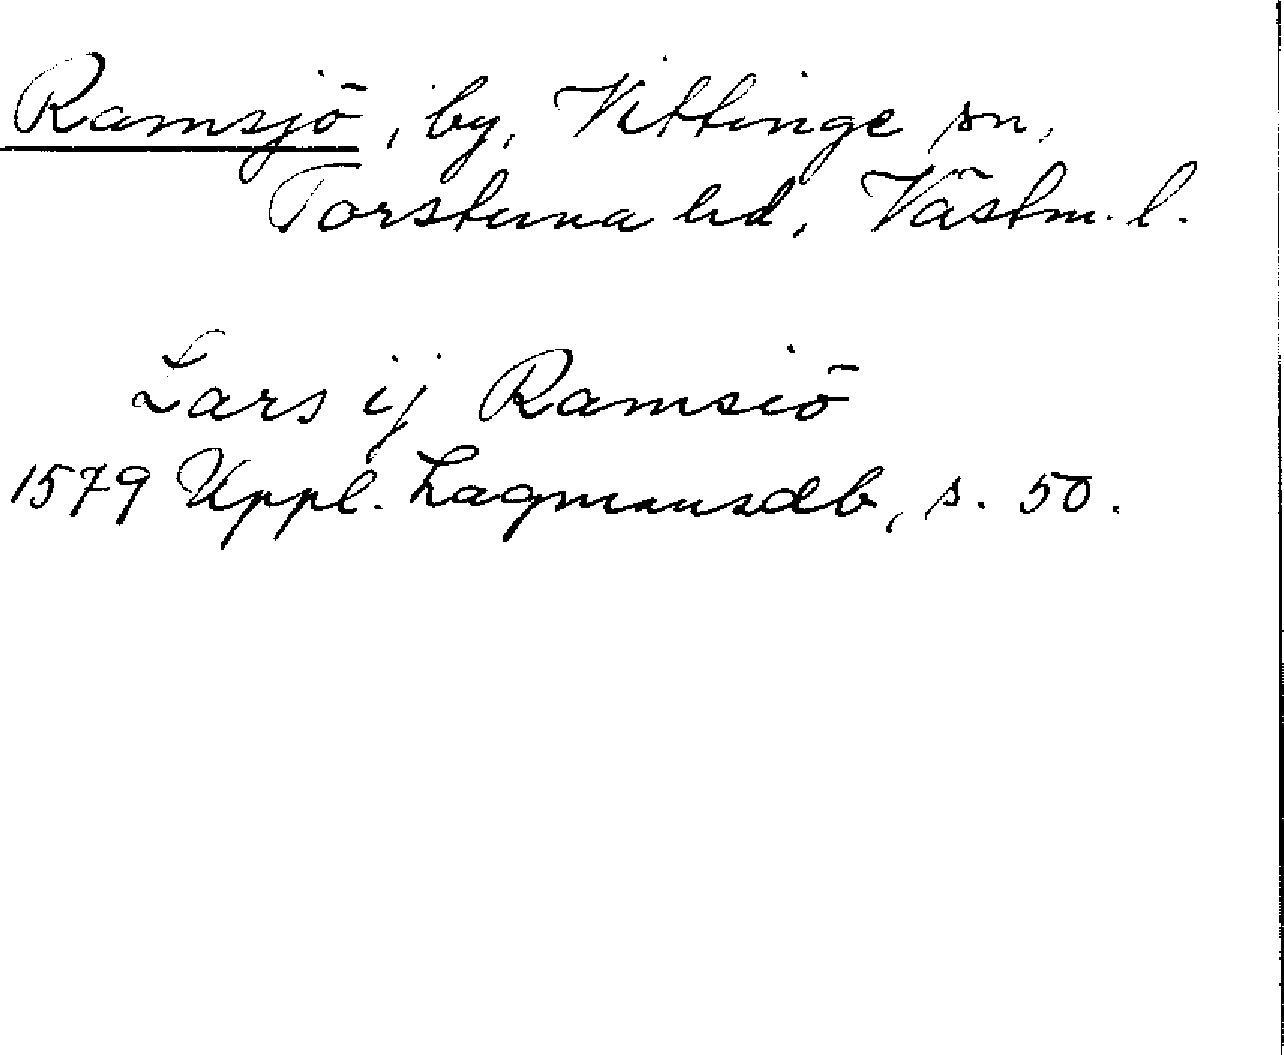 Ramsjö, by, Vittinge sn,
Torstuna hd, Västm. l.
Lars ij Ramsiö
1579 Uppl. Lagmansdb, s. 50.